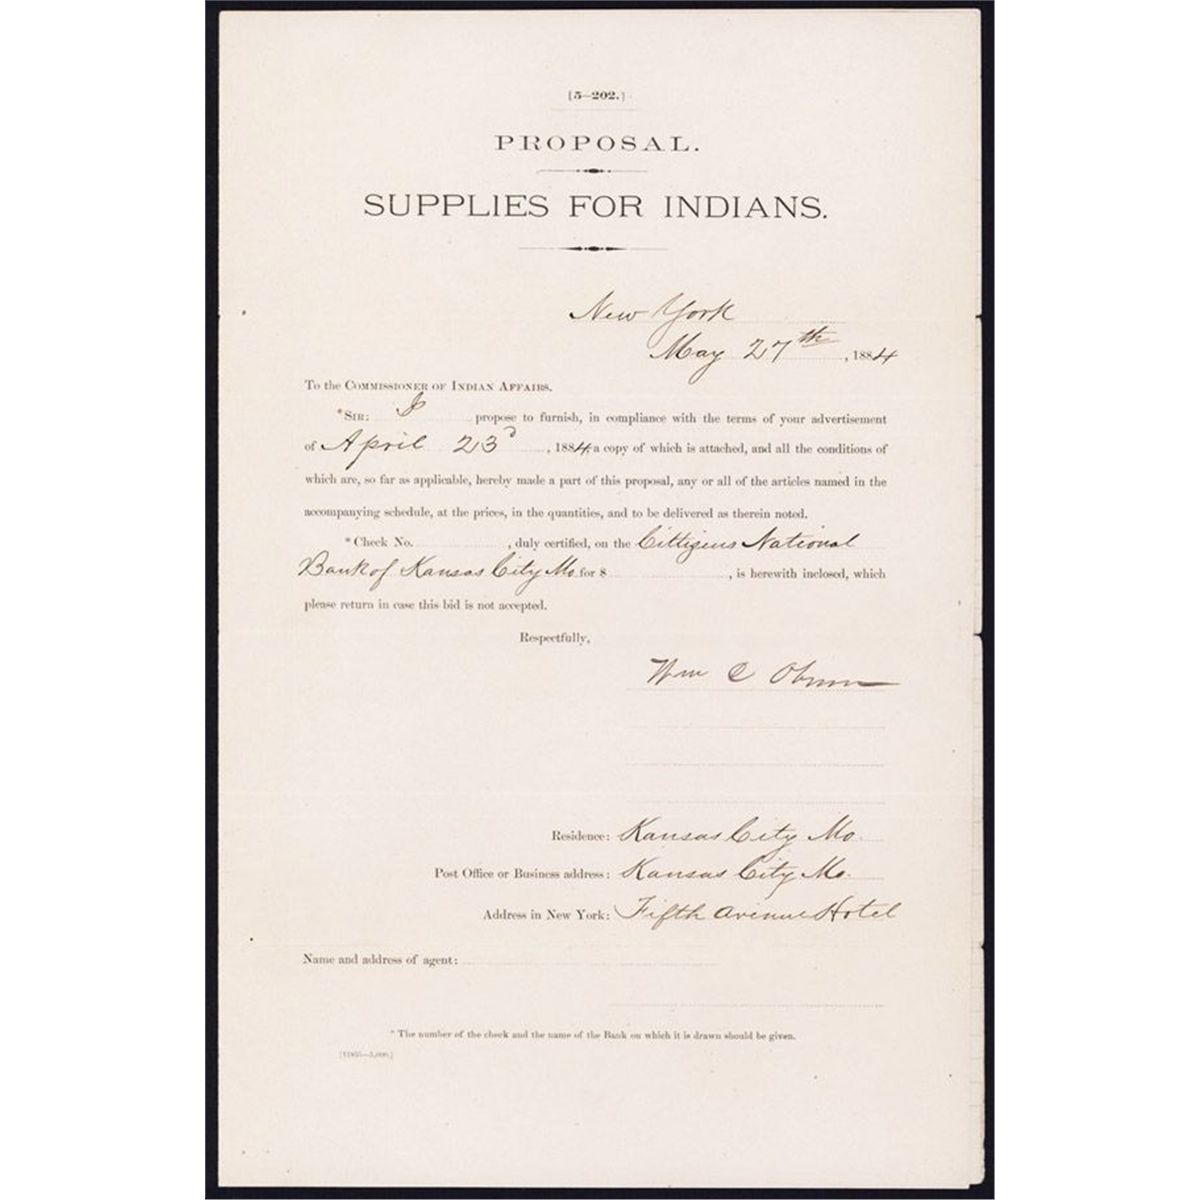 [5—202.]
PROPOSAL.
SUPPLIES FOR INDIANS.
New York
May 27th, 1884
To the COMMISSIONER OF INDIAN AFFAIRS.
*SIR: I propose to furnish, in compliance with the terms of your advertisement
of April 23d, 1884, a copy of which is attached, and all the conditions of
which are, so far as applicable, hereby made a part of this proposal, any or all of the articles named in the
accompanying schedule, at the prices, in the quantities, and to be delivered as therein noted.
*Check No. , duly certified, on the Cittizens National
Bank of Kansas City Mo. for $ , is herewith inclosed, which
please return in case this bid is not accepted.
Respectfully,
Wm C
Residence: Kansas City Mo.
Post Office or Business address: Kansas City Mo.
Address in New York: Fifth Avenue Hotel
Name and address of agent:
* The number of the check and the name of the Bank on which it is drawn should be given.